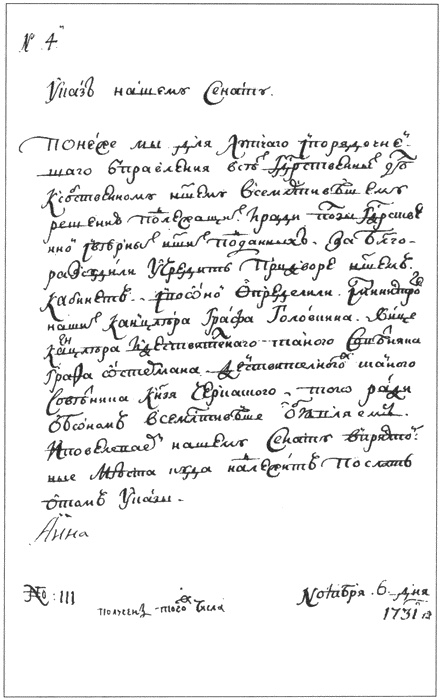 № 4
Указъ нашему Сенату.
Понеже мы для лутчаго и порядочнѣй
шаго управления всѣхъ Гдрственныхъ дѣлъ
к собственному ншему всемлтивѣшему
решению подлежащихъ и ради ползы Гдрстве
нной и вѣрныхъ ншихъ подданныхъ. за благо
разсудили учредить при дворе ншемъ
Кабинетъ. и во оной определили. министровъ
нашихъ канцлѣра Графа Головкина. вице
канцлѣра и дѣствителнаго таиного Совѣтника
Графа Остермана. дѣствителного таиного
Совѣтника Князя Черкаского. того ради
о бономъ всемлтивѣше объявляемъ.
и повелеваемъ нашему Сенату в прятчо
ные мѣста куда надлежитъ послать
о томъ указы.
Анна
№: 111
получен того ж числа
Ноября 6 дня
1731 г